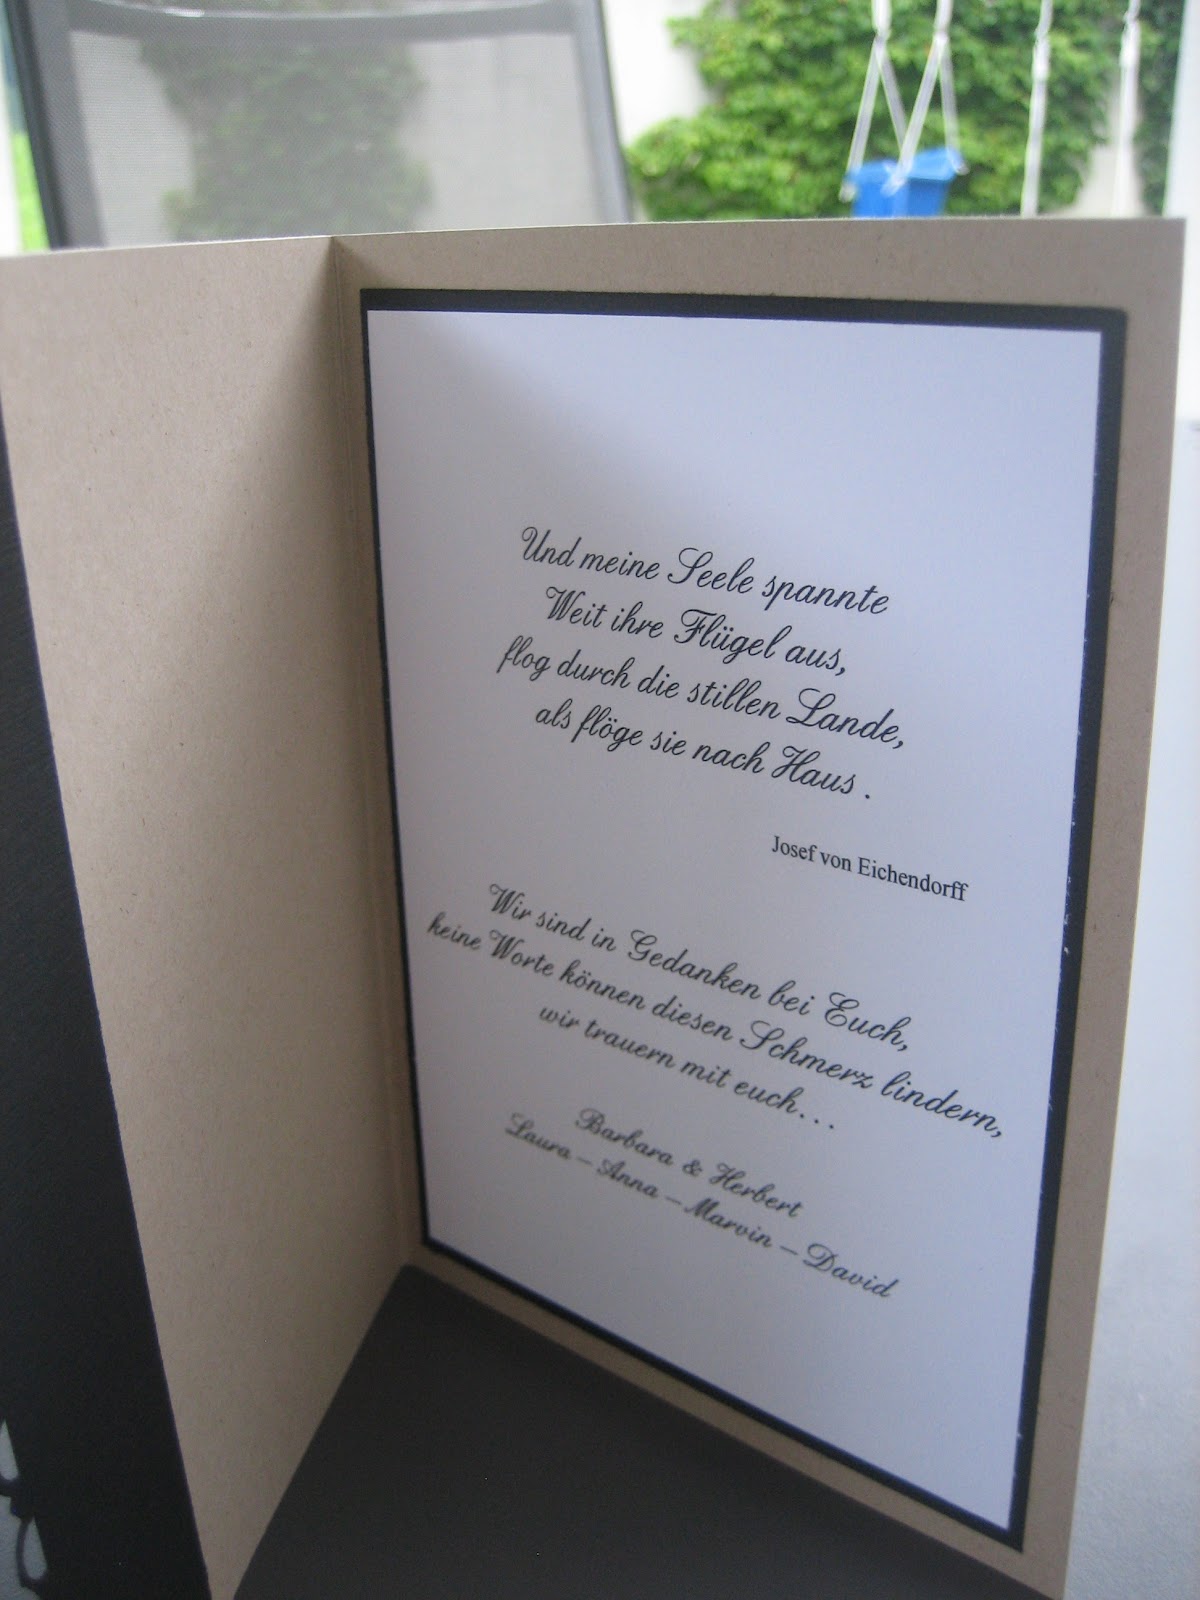 Und meine Seele spannte
Weit ihre Flügel aus,
flog durch die stillen Lande,
als flöge sie nach Haus .
Josef von Eichendorff
Wir sind in Gedanken bei Euch,
keine Worte können diesen Schmerz lindern,
wir trauern mit euch…
Barbara & Herbert
Laura – Anna – Marvin – David